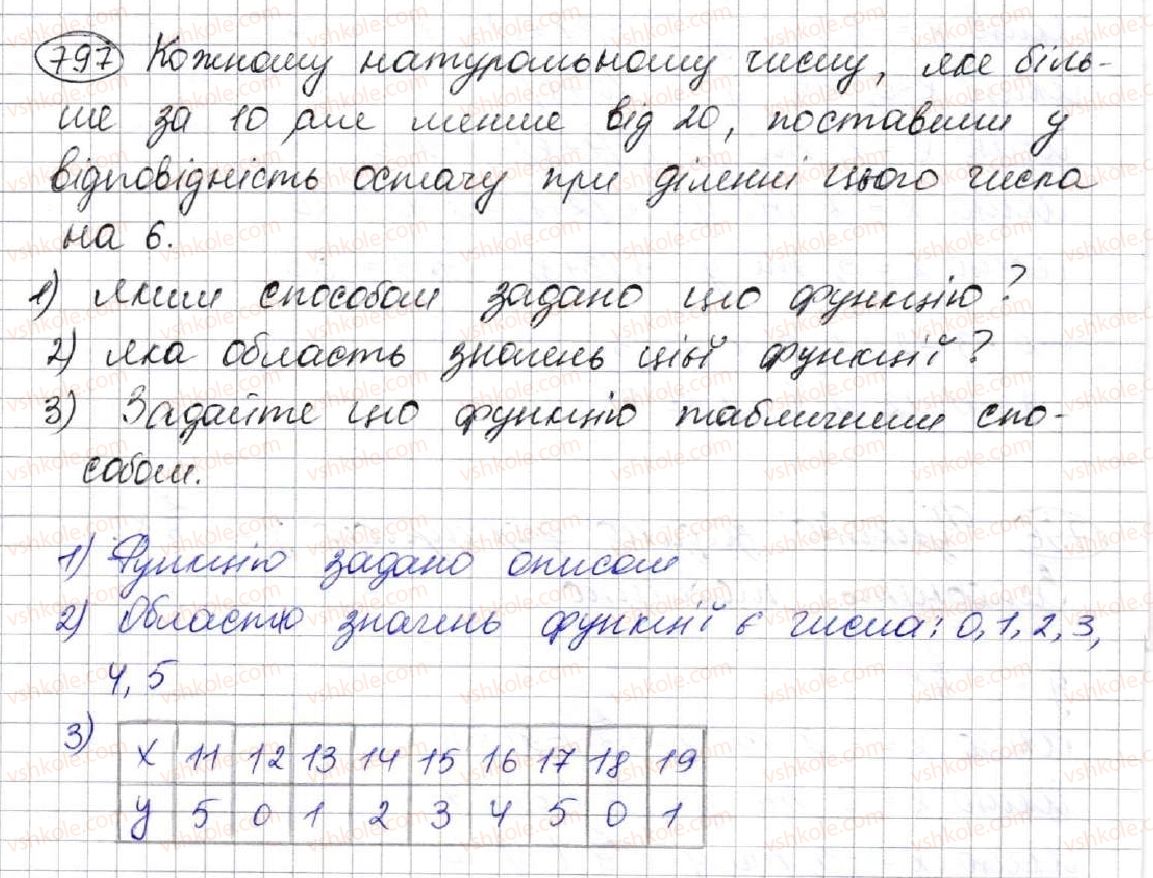 797 Кожному натуральному числу, яке біль-
ше за 10 але менше від 20, поставили у
відповідність остачу при діленні цього числа
на 6.
1) яким способом задано цю функцію?
2) яка область значень цієї функції?
3) Задайте цю функцію табличним спо-
собом.
1) Функцію задано описом
2) Областю значень функції є числа: 0, 1, 2, 3,
4, 5
3)
x 11 12 13 14 15 16 17 18 19
y 5 0 1 2 3 4 5 0 1
vshkole.com